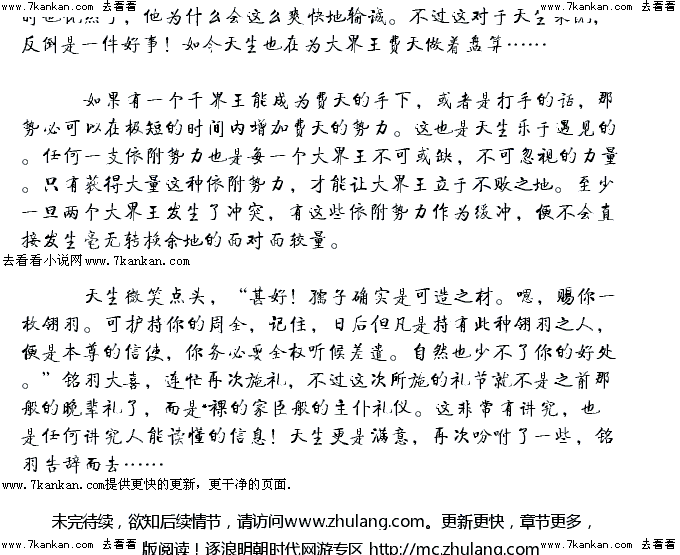 www.7kankan.com 去看看 www.7kankan.com 去看看 www.7kankan.com 去看看 www.7kankan.com 去看看
他为什么会这么爽快地输诚。不过这对于天生来说，
反倒是一件好事！如今天生也在为大界王费天做着盘算……
如果有一个千界王能成为费天的手下，或者是打手的话，那
势必可以在极短的时间内增加费天的势力。这也是天生乐于遇见的
。任何一支依附势力也是每一个大界王不可或缺，不可忽视的力量
。只有获得大量这种依附势力，才能让大界王立于不败之地。至少
一旦两个大界王发生了冲突，有这些依附势力作为缓冲，便不会直
接发生毫无转换余地的面对面较量。
去看看小说网www.7kankan.com
天生微笑点头，“甚好！孺子确实是可造之材。嗯，赐你一
枚翎羽。可护持你的周全，记住，日后但凡是持有此种翎羽之人，
便是本尊的信使，你务必要全权听候差遣。自然也少不了你的好处
。”铭羽大喜，连忙再次施礼，不过这次所施的礼节就不是之前那
般的晚辈礼了，而是*裸的家臣般的主仆礼仪。这非常有讲究，也
是任何讲究人能读懂的信息！天生更是满意，再次吩咐了一些，铭
羽告辞而去……
www.7kankan.com提供更快的更新，更干净的页面.
未完待续，欲知后续情节，请访问www.zhulang.com。更新更快，章节更多，
www.7kankan.com 去看看 www.7kankan.com 去看看 www.7kankan.com 去看看 www.7kankan.com 去看看
版阅读！逐浪明朝时代网游专区 http://mc.zhulang.com